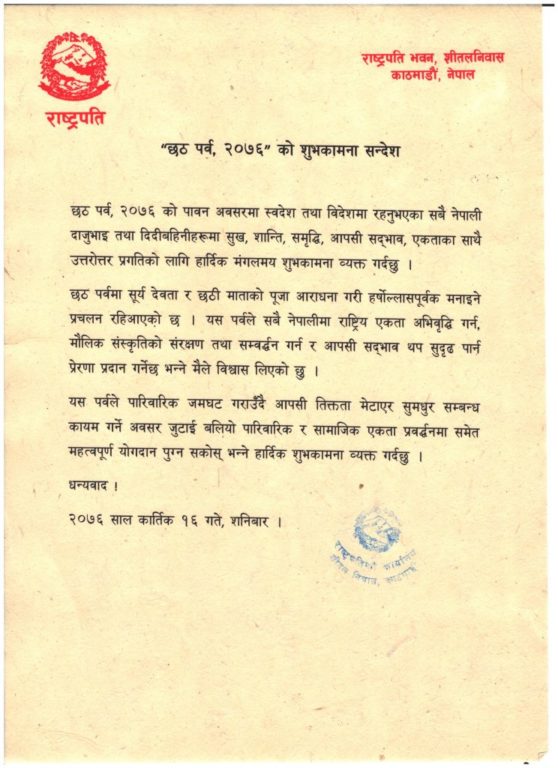 राष्ट्रपति भवन, शीतलनिवास
काठमाडौं, नेपाल
राष्ट्रपति
"छठ पर्व, २०७६" को शुभकामना सन्देश
छठ पर्व, २०७६ को पावन अवसरमा स्वदेश तथा विदेशमा रहनुभएका सबै नेपाली
दाजुभाइ तथा दिदीबहिनीहरूमा सुख, शान्ति, समृद्धि, आपसी सद्भाव, एकताका साथै
उत्तरोत्तर प्रगतिको लागि हार्दिक मंगलमय शुभकामना व्यक्त गर्दछु ।
छठ पर्वमा सूर्य देवता र छठी माताको पूजा आराधना गरी हर्षोल्लासपूर्वक मनाइने
प्रचलन रहिआएको छ । यस पर्वले सबै नेपालीमा राष्ट्रिय एकता अभिवृद्धि गर्न,
मौलिक संस्कृतिको संरक्षण तथा सम्वर्द्धन गर्न र आपसी सद्भाव थप सुदृढ पार्न
प्रेरणा प्रदान गर्नेछ भन्ने मैले विश्वास लिएको छु ।
यस पर्वले पारिवारिक जमघट गराउँदै आपसी तिक्तता मेटाएर सुमधुर सम्बन्ध
कायम गर्ने अवसर जुटाई बलियो पारिवारिक र सामाजिक एकता प्रवर्द्धनमा समेत
महत्वपूर्ण योगदान पुग्न सकोस् भन्ने हार्दिक शुभकामना व्यक्त गर्दछु ।
धन्यवाद !
२०७६ साल कार्तिक १६ गते, शनिबार ।
राष्ट्रपतिको कार्यालय
शीतल निवास, काठमाडौं